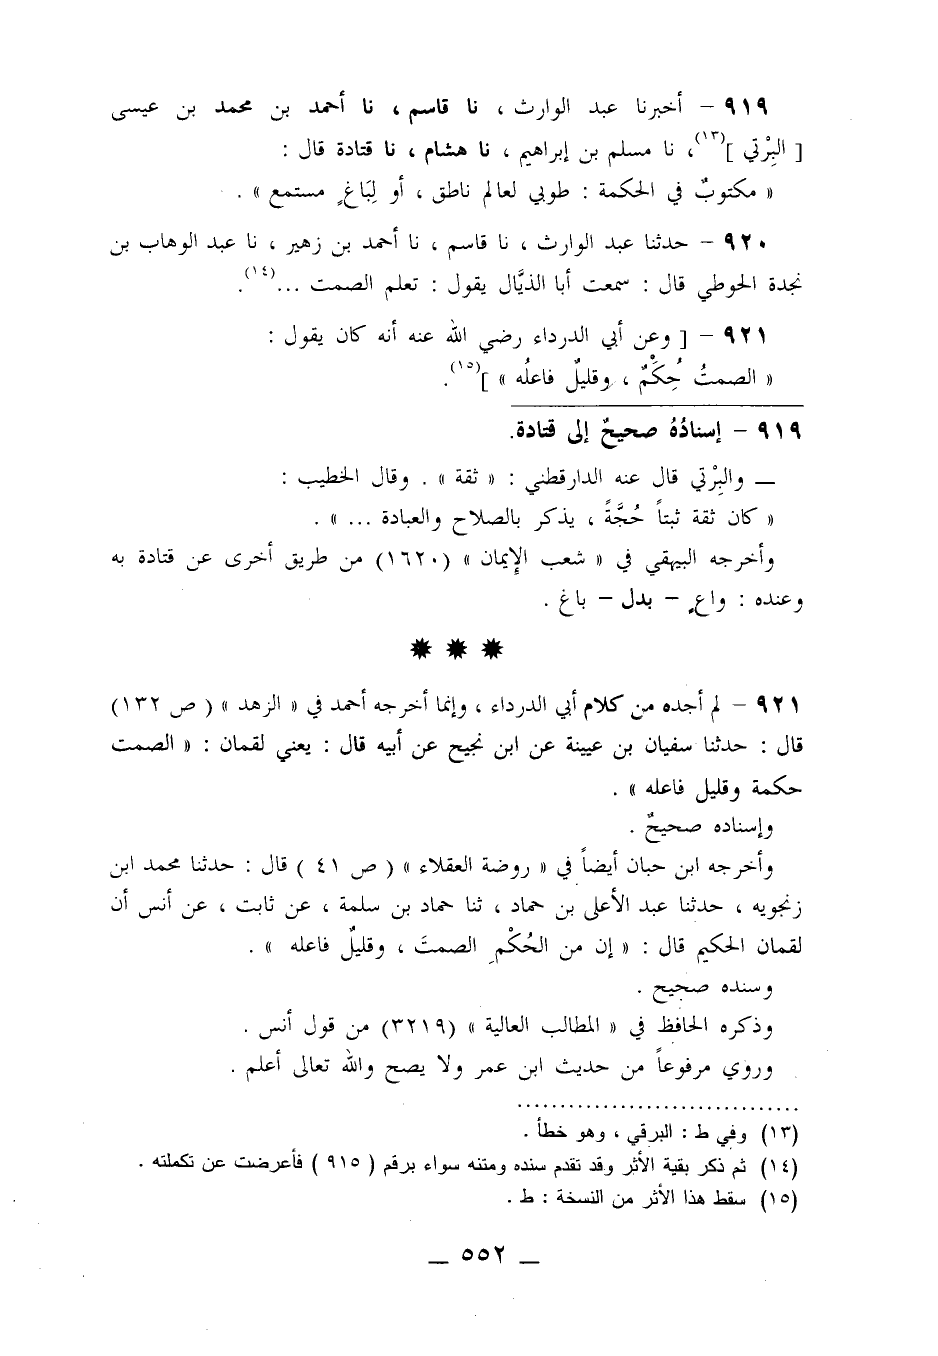 ٩١٩ – أخبرنا عبد الوارث ، نا قاسم ، نا أحمد بن محمد بن عيسى
[ البِرْتي ](١٣)، نا مسلم بن إبراهيم ، نا هشام ، نا قتادة قال :
« مكتوبٌ في الحكمة : طوبي لعالم ناطق ، أو لِبَاغٍ مستمع » .
٩٢٠ – حدثنا عبد الوارث ، نا قاسم ، نا أحمد بن زهير ، نا عبد الوهاب بن
نجدة الحوطي قال : سمعت أبا الذيَّال يقول : تعلم الصمت ...(١٤).
٩٢١ – [ وعن أبي الدرداء رضي الله عنه أنه كان يقول :
« الصمتُ حُِكَْمٌ ، وقليلٌ فاعلُه » ](١٥).
٩١٩ – إسنادُهُ صحيحٌ إلى قتادة.
ــ والبِرْتي قال عنه الدارقطني : « ثقة » . وقال الخطيب :
« كان ثقة ثبتاً حُجَّةً ، يذكر بالصلاح والعبادة ... » .
وأخرجه البيهقي في « شعب الإيمان » (١٦٢٠) من طريق أخرى عن قتادة به
وعنده : واعٍ – بدل – باغ .
✸ ✸ ✸
٩٢١ – لم أجده من كلام أبي الدرداء ، وإنما أخرجه أحمد في « الزهد » ( ص ١٣٢)
قال : حدثنا سفيان بن عيينة عن ابن نجيح عن أبيه قال : يعني لقمان : « الصمت
حكمة وقليل فاعله » .
وإسناده صحيحٌ .
وأخرجه ابن حبان أيضاً في « روضة العقلاء » ( ص ٤١ ) قال : حدثنا محمد ابن
زنجويه ، حدثنا عبد الأعلى بن حماد ، ثنا حماد بن سلمة ، عن ثابت ، عن أنس أن
لقمان الحكيم قال : « إن من الحُكْمِ الصمتَ ، وقليلٌ فاعله » .
وسنده صحيح .
وذكره الحافظ في « المطالب العالية » (٣٢١٩) من قول أنس .
وروي مرفوعاً من حديث ابن عمر ولا يصح والله تعالى أعلم .
.................................
(١٣) وفي ط : البرقي ، وهو خطأ .
(١٤) ثم ذكر بقية الأثر وقد تقدم سنده ومتنه سواء برقم ( ٩١٥ ) فأعرضت عن تكملته .
(١٥) سقط هذا الأثر من النسخة : ط .
ــ ٥٥٢ ــ